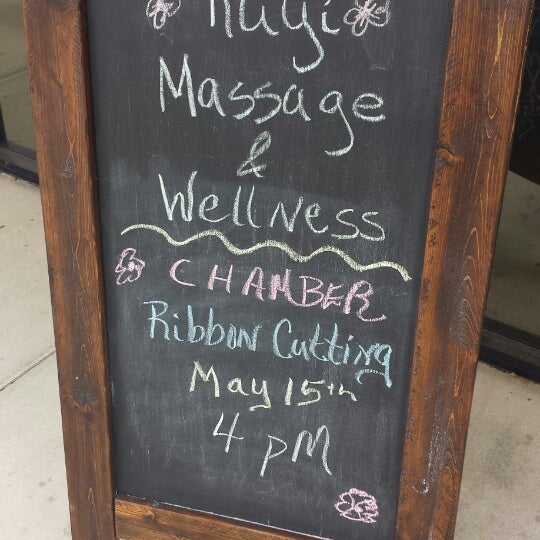 Massage
&
Wellness
CHAMBER
Ribbon Cutting
May 15th
4 pM